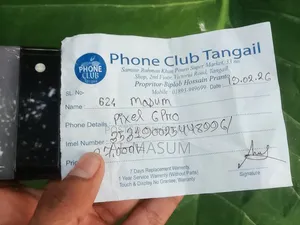 PHONE CLUB
Phone Club Tangail
Samsur Rahman Khan Pouro Super Market, 11 no
Shop, 2nd Floor, Victoria Road, Tangail.
Propritor Biplob Hossain Pranto
Mobile:
SL No: 624
Date: 10.02.26
Name: Masum
Phone Details: Pixel 6 Pro
Imei Number:
Price:
MASUM
7 Days Replacement Warranty
1 Year Service Warranty (Without Parts)
Touch & Display No Cosmetic, Warranty
Signature